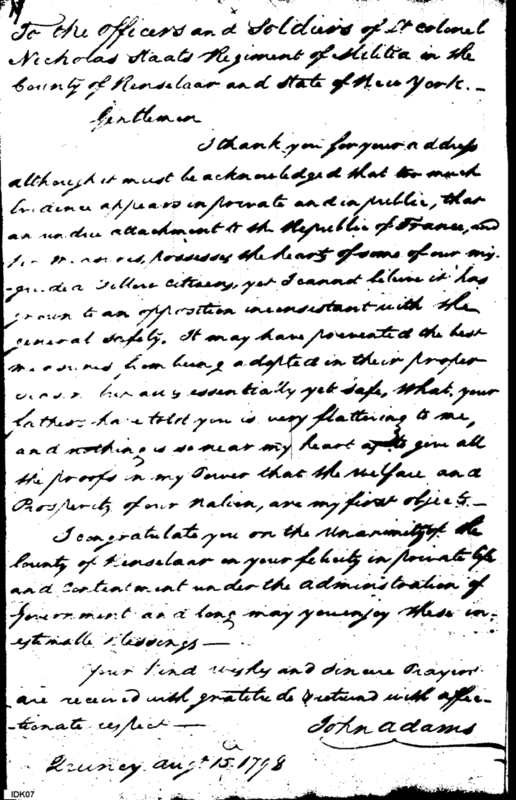 To the officers and Soldiers of Lt Colonel
Nicholas Staats Regiment of Militia in the
County of Renselaar and State of New York. –
Gentlemen
I thank you for your address
although it must be acknowledged that too much
Evidence appears in private and in public, that
an undue attachment to the Republic of France, and
her measures, possesses the hearts of some of our mis-
guided fellow Citizens, yet I cannot believe it has
grown to an opposition inconsistant with the
general Safety. It may have prevented the best
measures from being adopted in their proper
season but essentially yet safe, What, your
fathers have told you is very flattering to me,
and nothing is so near my heart as to give all
the proofs in my Power that the Welfare and
Prosperity of our Nation, are my first objects. –
I congratulate you on the Unanimity of the
County of Renselaar on your felicity in private life
and Contentment under the administration of
Government and long may you enjoy these in-
estimable Blessings –
Your kind wishes and Sincere Prayers
are received with gratitude & returnd with affec-
-tionate respect –
John Adams
Quincy Augt 15. 1798
IDK07